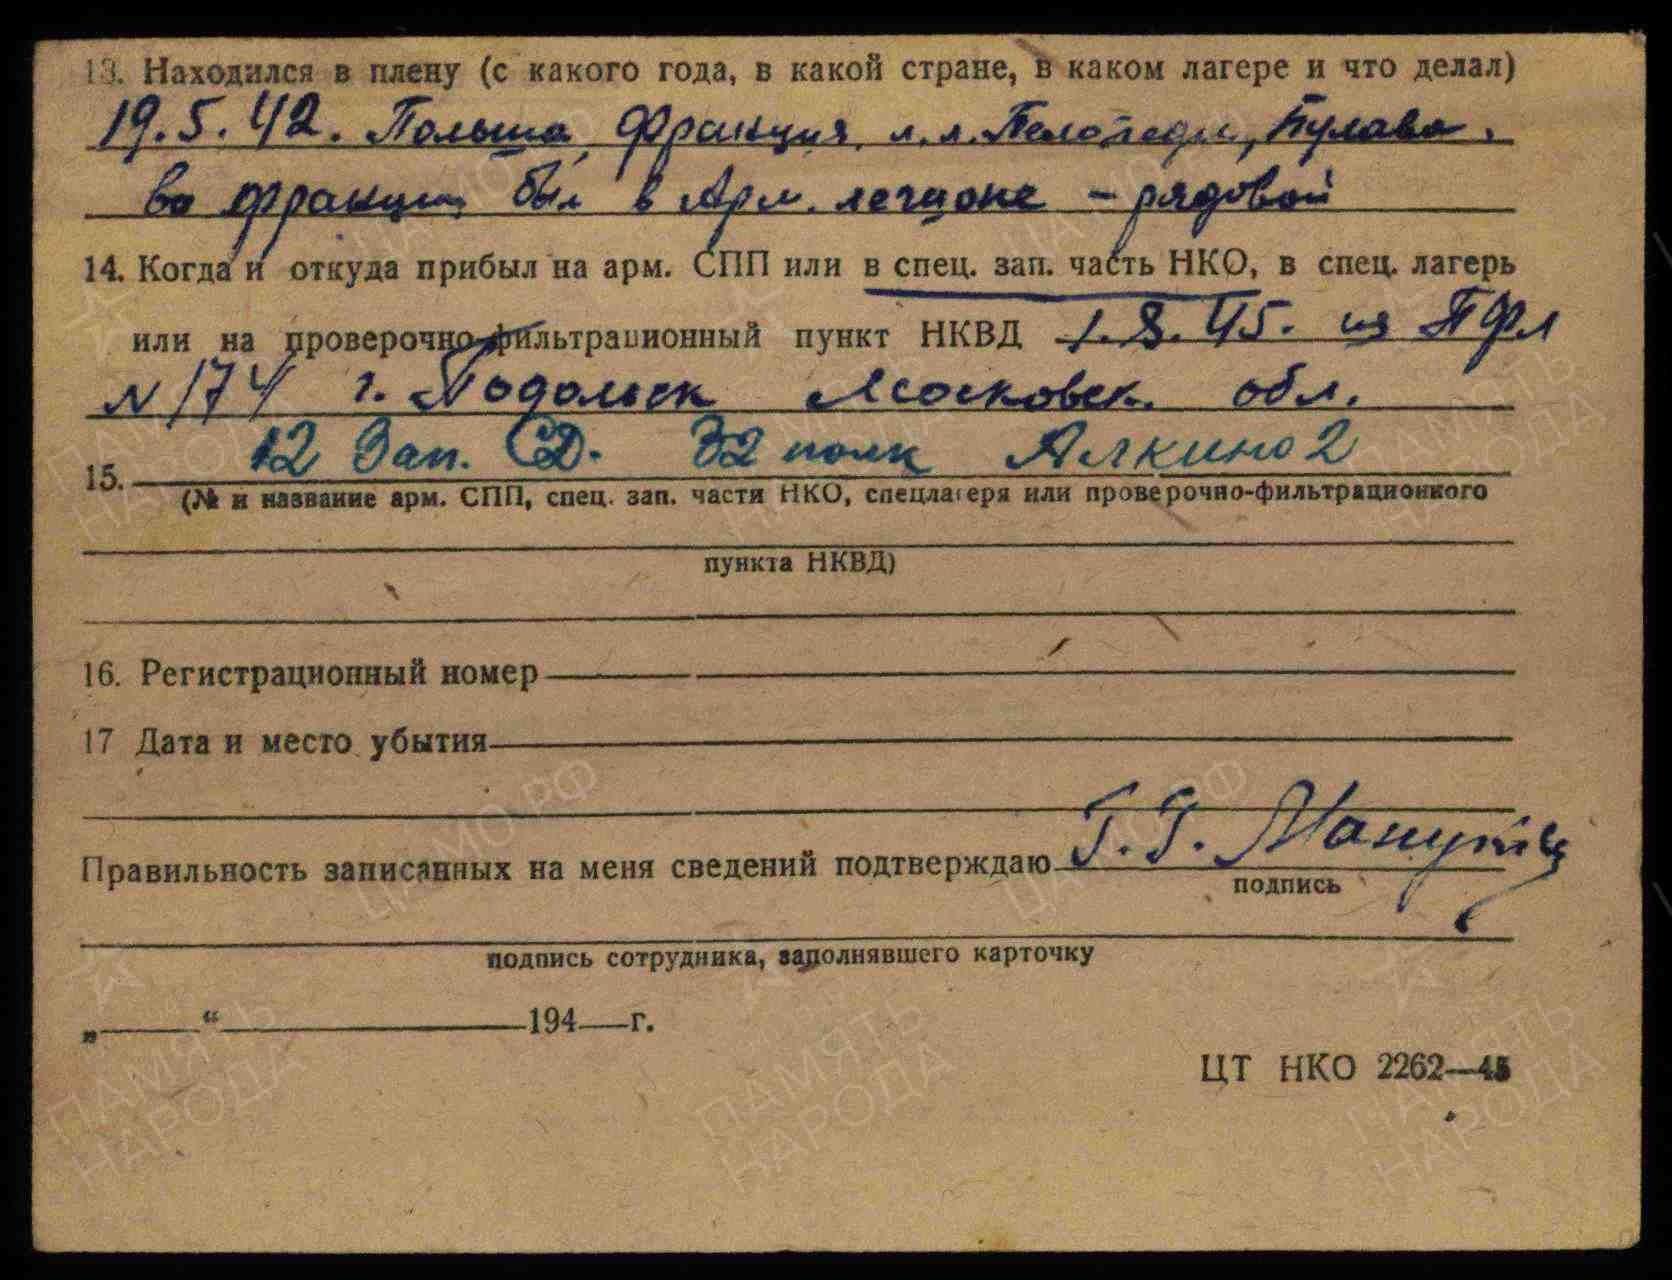 13. Находился в плену (с какого года, в какой стране, в каком лагере и что делал)
19.5.42. Польша, Франция, л.л. Пулава.
во Франции был в Арм. легионе – рядовой
14. Когда и откуда прибыл на арм. СПП или в спец. зап. часть НКО, в спец. лагерь
или на проверочно-фильтрационный пункт НКВД 1.8.45. из ПФЛ
N 174 г. Подольск Московск. обл.
12 Зап. СД. 32 полк Алкино 2
15.
(№ и название арм. СПП, спец. зап. части НКО, спецлагеря или проверочно-фильтрационного
пункта НКВД)
16. Регистрационный номер
17 Дата и место убытия
Правильность записанных на меня сведений подтверждаю Г. Г. Манукян
подпись
подпись сотрудника, заполнявшего карточку
„ “ 194 г.
ЦТ НКО 2262—45
ЦА МО РФ
ПАМЯТЬ
НАРОДА